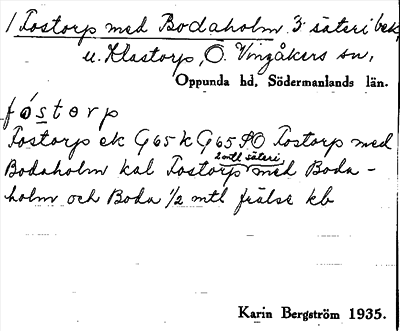 1 Fostorp med Bodaholm 3: säteri bek,
u. Klastorp, Ö. Vingåkers sn,
Oppunda hd, Södermanlands län.
fóstorp
Fostorp ek G 65 k G 65 SO Fostorp med
2 mtl säteri
Bodaholm kal Fostorp med Boda-
holm och Boda 1/2 mtl frälse kb
Karin Bergström 1935.